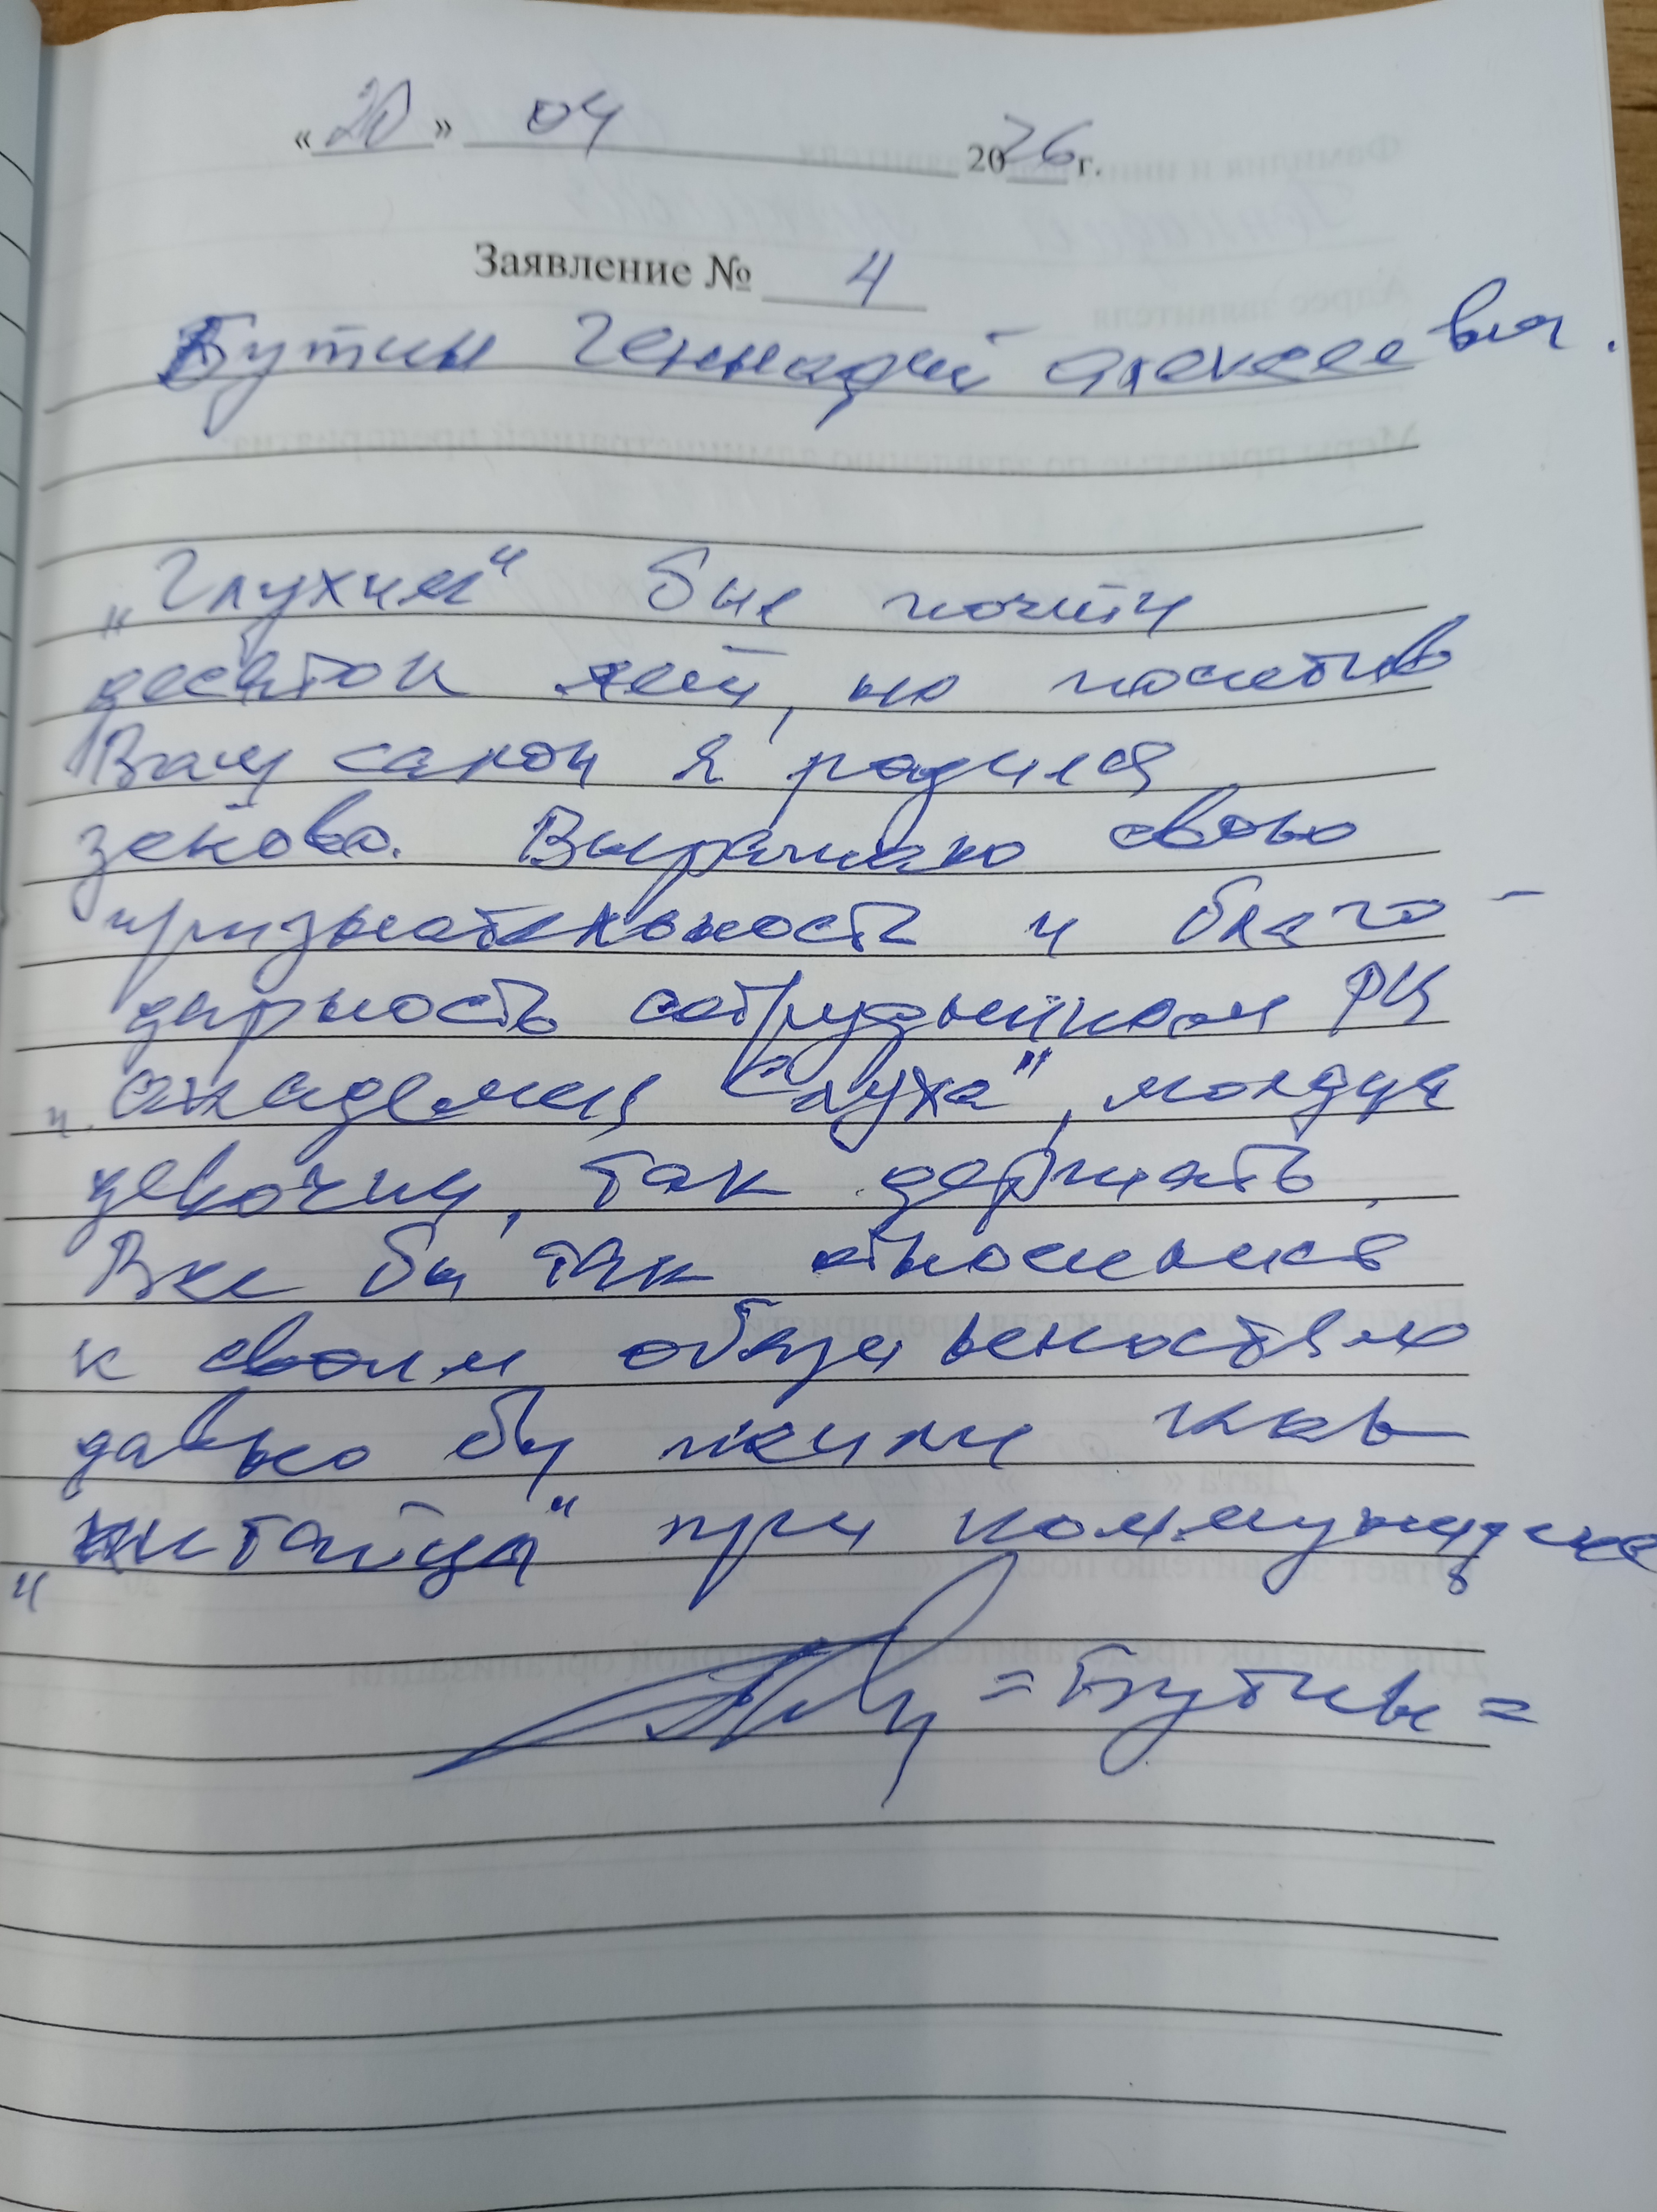 «20» 04 2026 г.
Заявление № 4
Бутин Геннадий Алексеевич.
„Глухим" был почти
десяток лет, но посетив
Ваш салон я родился
заново. Выражаю свою
признательность и благо-
дарность сотрудникам РЦ
„Академия Слуха", молодцы
девочки, так держать.
Все бы так относился
к своим обязанностям
давно бы жили как
„китайцы" при коммунизме
=Бутин=